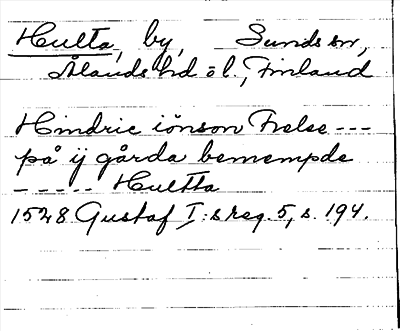 Hulta, by, Sunds sn,
Ålands hd o l., Finland
Hindric iönson Frelse ---
på ij gårda bemempde
----- Hultta
1528 Gustaf I:s reg. 5, s. 194.